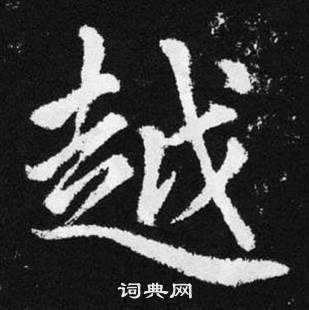 越
词典网